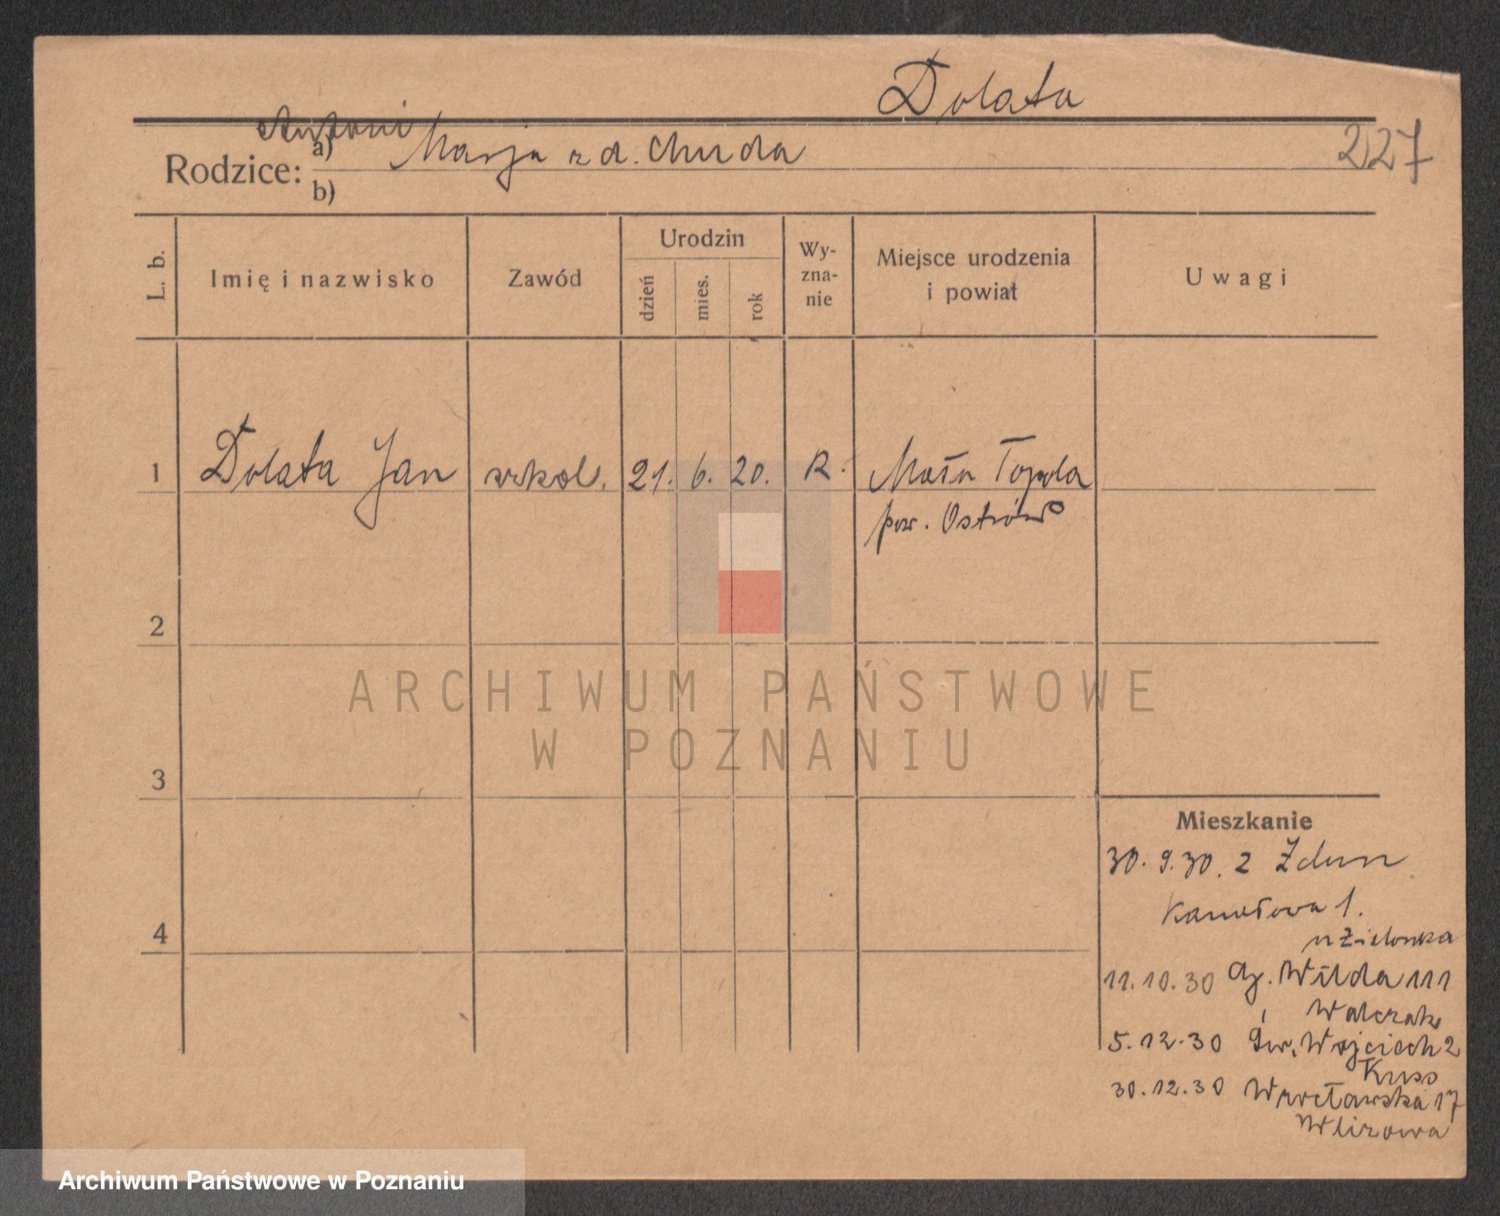 Dolata
Antoni
Rodzice: a) Marja z d. Chuda
b)
227
L. b.
Imię i nazwisko
Zawód
Urodzin
dzień
mies.
rok
Wy-
zna-
nie
Miejsce urodzenia
i powiat
Uwagi
1 Dolata Jan szkol. 21. 6. 20. R. Mała Topola
pow. Ostrów
2
3
4
ARCHIWUM PAŃSTWOWE
W POZNANIU
Mieszkanie
30. 9. 30. z Zdun
1.
u Zielonka
11. 10. 30 Wilda 111
Walczak
5. 12. 30 Św. Wojciech 2
Kuss
30. 12. 30 Wrocławska 17
Archiwum Państwowe w Poznaniu